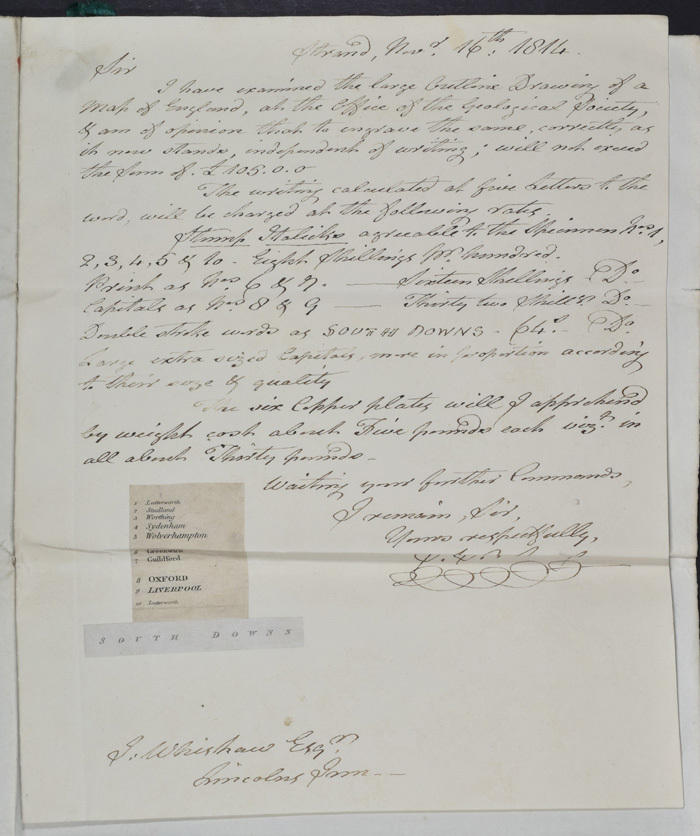 Strand, Novr. 16th. 1814.
Sir
I have examined the large Outline Drawing of a
Map of England, at the Office of the Geological Society,
& am of opinion that to engrave the same correctly as
it now stands, independent of writing; will not exceed
the Sum of. £105.0.0
The writing calculated at five Letters to the
word, will be charged at the following rates,
Stump Italicks agreeable to the Specimen Nos. 1,
2, 3, 4, 5 & 10 - Eight Shillings pr. hundred.
Print as Nos. 6 & 7. — Sixteen Shillings — Do.
Capitals as Nos. 8 & 9 — Thirty two Shillgs. Do.
Double stroke words as SOUTH DOWNS - 64s. — Do.
Large extra sized Capitals, more in proportion according
to their size & quality
The six Copper plates will I apprehend
by weight cost about Five pounds each vizt. in
all about Thirty pounds.
Waiting your further Commands,
I remain, Sir,
Yours respectfully,
1 Lutterworth
2 Studland
3 Worthing
4 Sydenham
5 Wolverhampton
6 Greenwich
7 Guildford
8 OXFORD
9 LIVERPOOL
10 Lutterworth
SOUTH DOWNS
J. Whishaw Esqr.
Lincolns Inn